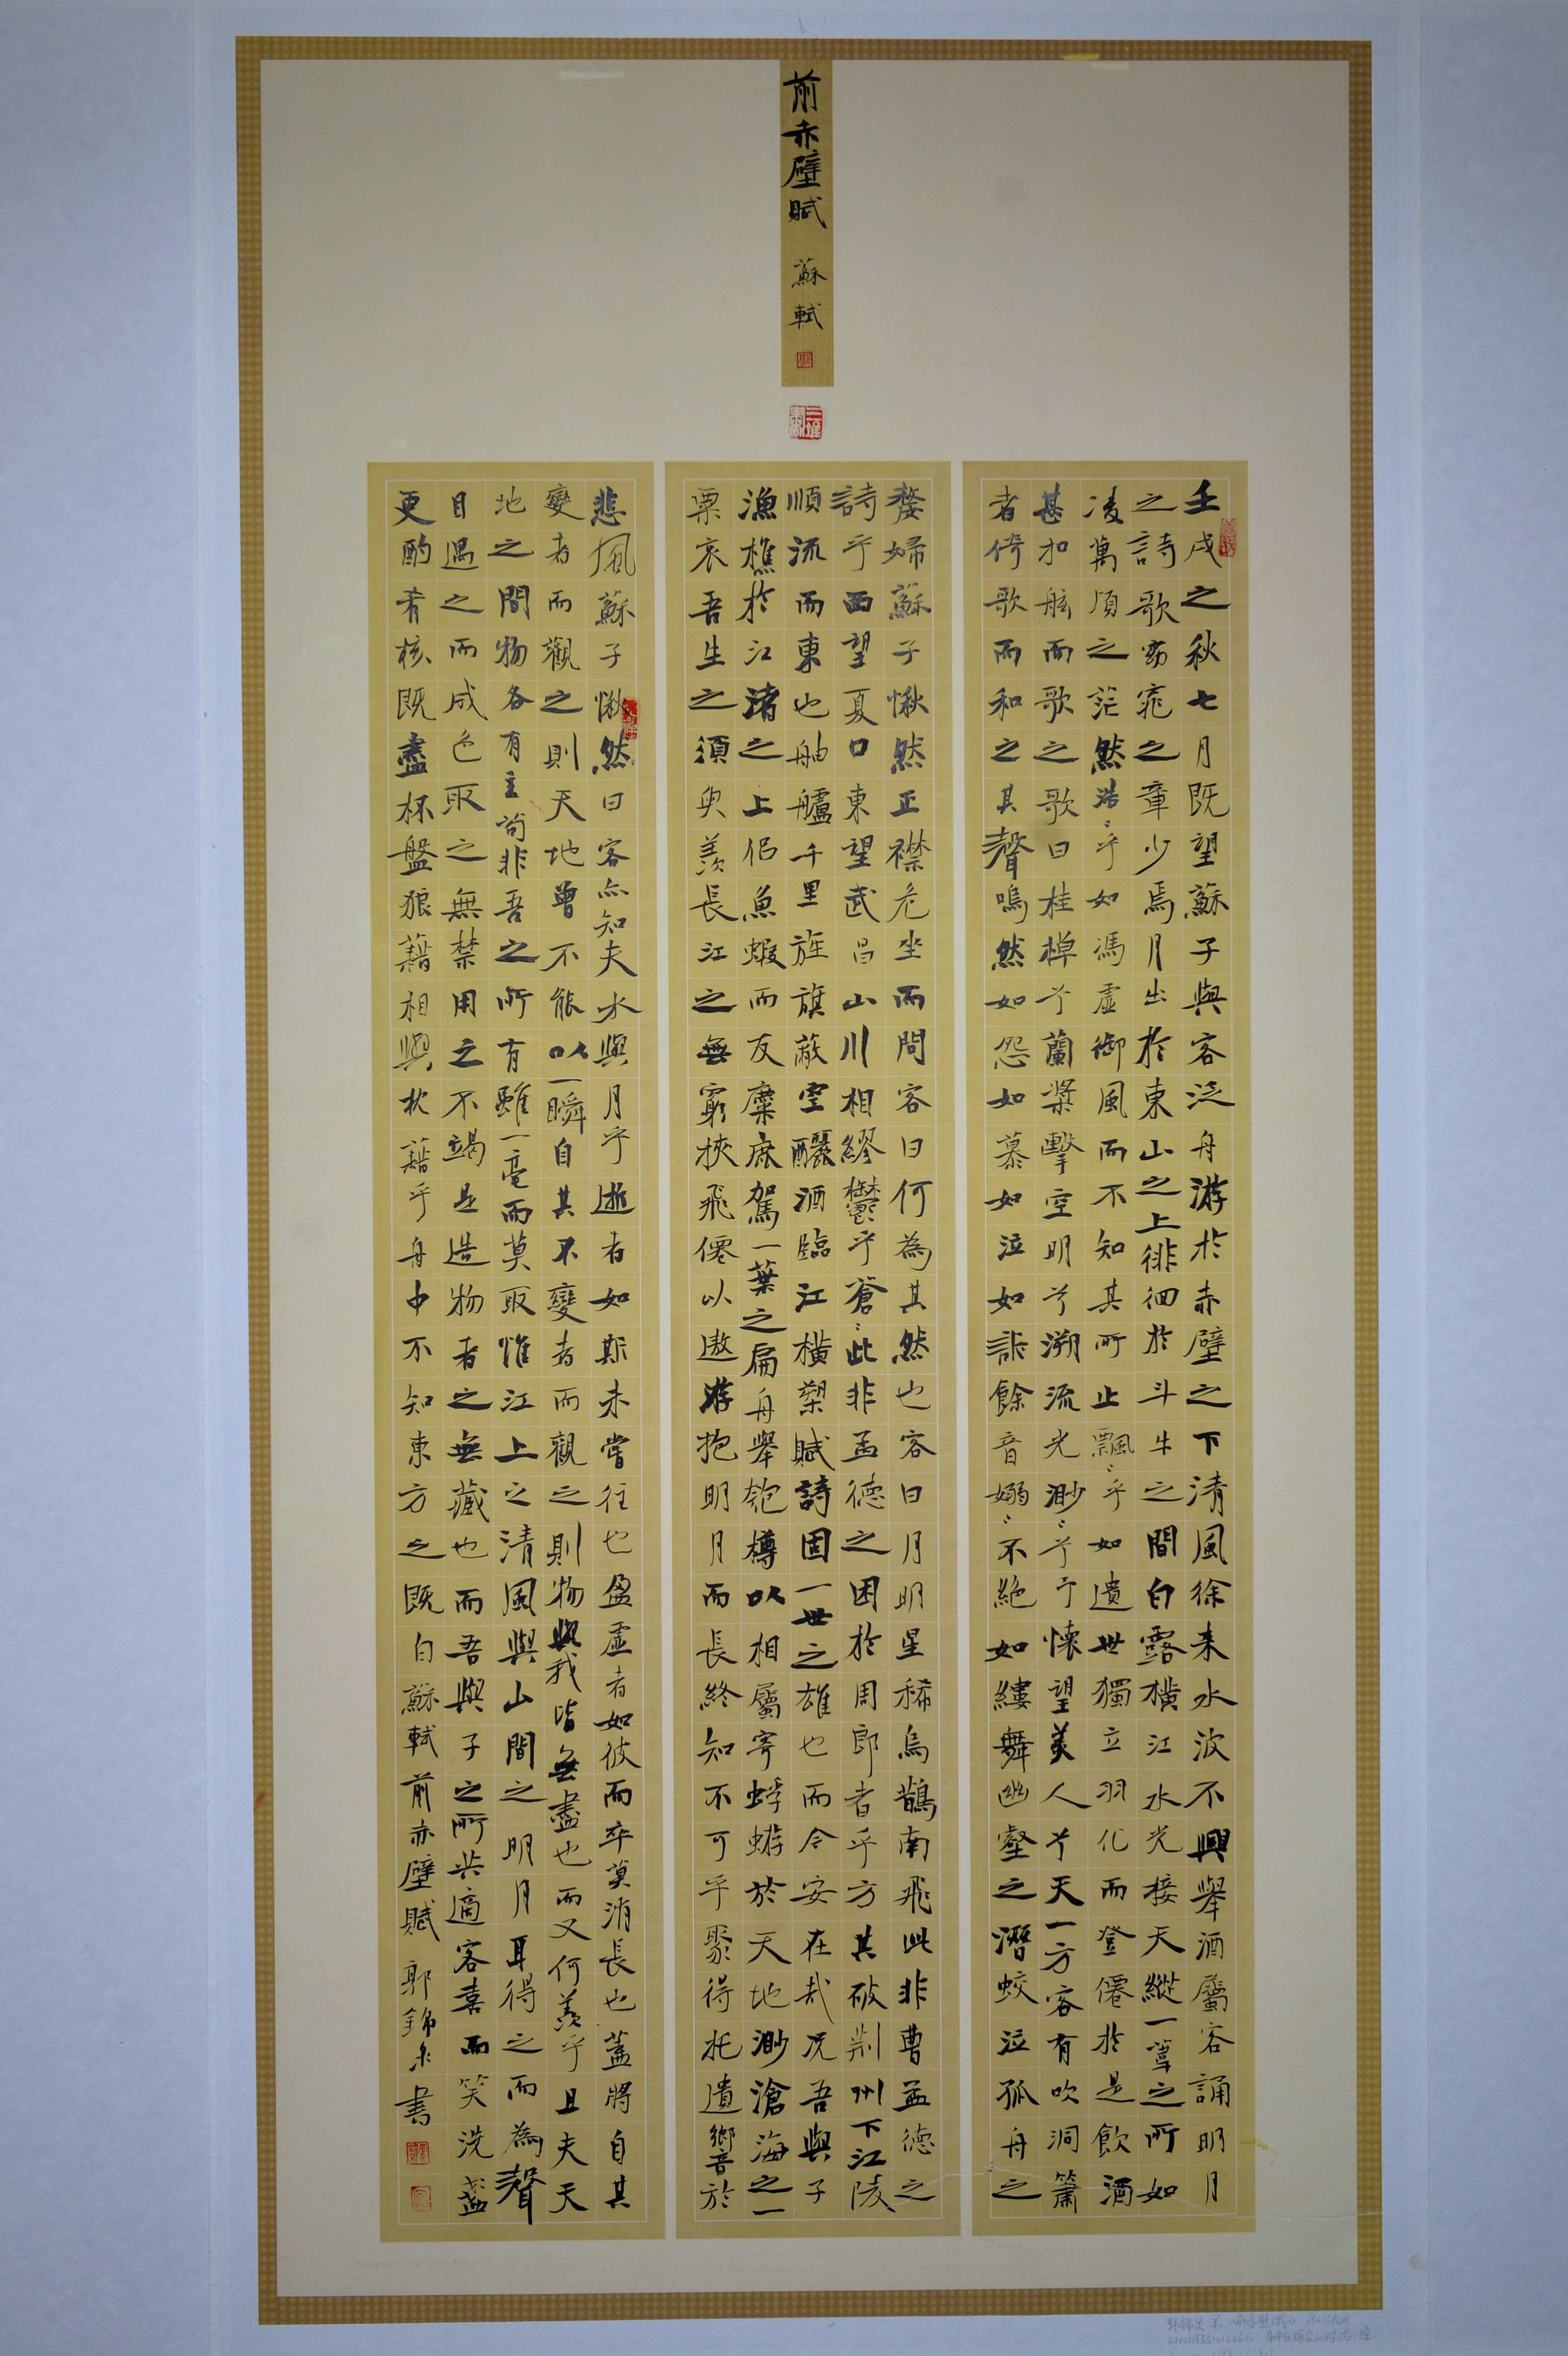 前赤壁賦 蘇軾
壬戌之秋七月既望蘇子與客泛舟游於赤壁之下清風徐来水波不興舉酒屬客誦明月
之詩歌窈窕之章少焉月出於東山之上徘徊於斗牛之間白露橫江水光接天縱一葦之所如
凌萬頃之茫然浩〻乎如馮虛御風而不知其所止飄〻乎如遺世獨立羽化而登僊於是飲酒
甚扣舷而歌之歌曰桂棹兮蘭槳擊空明兮溯流光渺〻兮于懷望美人兮天一方客有吹洞簫
者倚歌而和之其聲嗚然如怨如慕如泣如訴餘音嫋〻不絕如縷舞幽壑之潛蛟泣孤舟之
嫠婦蘇子愀然正襟危坐而問客曰何為其然也客曰月明星稀烏鵲南飛此非曹孟德之
詩乎西望夏口東望武昌山川相繆鬱乎蒼〻此非孟德之困於周郎者乎方其破荆州下江陵
順流而東也舳艫千里旌旗蔽空釃酒臨江橫槊賦詩固一世之雄也而今安在哉况吾與子
漁樵於江渚之上侣魚蝦而友麋鹿駕一葉之扁舟舉匏樽以相屬寄蜉蝣於天地渺滄海之一
粟哀吾生之須臾羨長江之無窮挾飛僊以遨游抱明月而長終知不可乎聚得托遺響於
悲風蘇子愀然曰客亦知夫水與月乎逝者如斯未嘗往也盈虛者如彼而卒莫消長也蓋將自其
變者而觀之則天地曾不能以一瞬自其不變者而觀之則物與我皆無盡也而又何羨乎且夫天
地之間物各有主苟非吾之所有雖一毫而莫取惟江上之清風與山間之明月耳得之而為聲
目遇之而成色取之無禁用之不竭是造物者之無藏也而吾與子之所共適客喜而笑洗盞
更酌肴核既盡杯盤狼藉相與枕藉乎舟中不知東方之既白蘇軾前赤壁賦 郭錦書